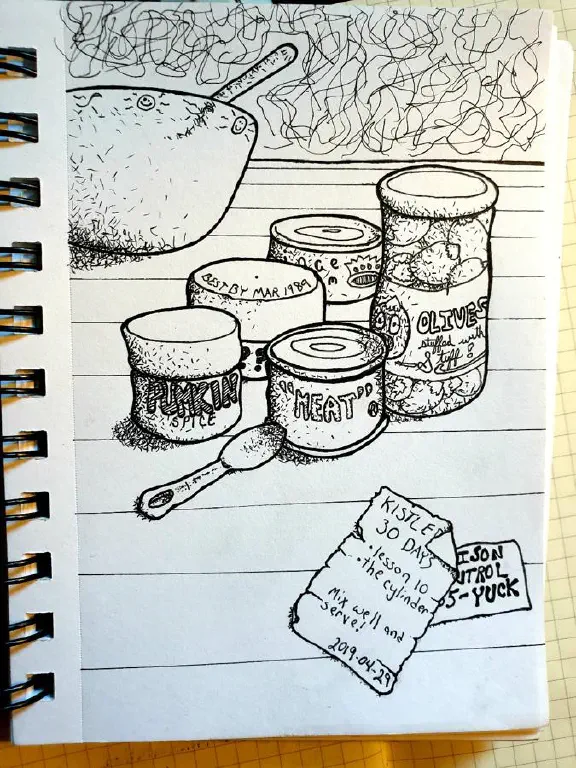 BEST BY MAR 1989
OLIVES
stuffed with
Stuff!
PUMKIN
SPICE
"MEAT"
KISTLER
30 DAYS
• lesson 10
• the cylinder
Mix well and
serve!
2019-04-29
ISON
NTROL
5-YUCK